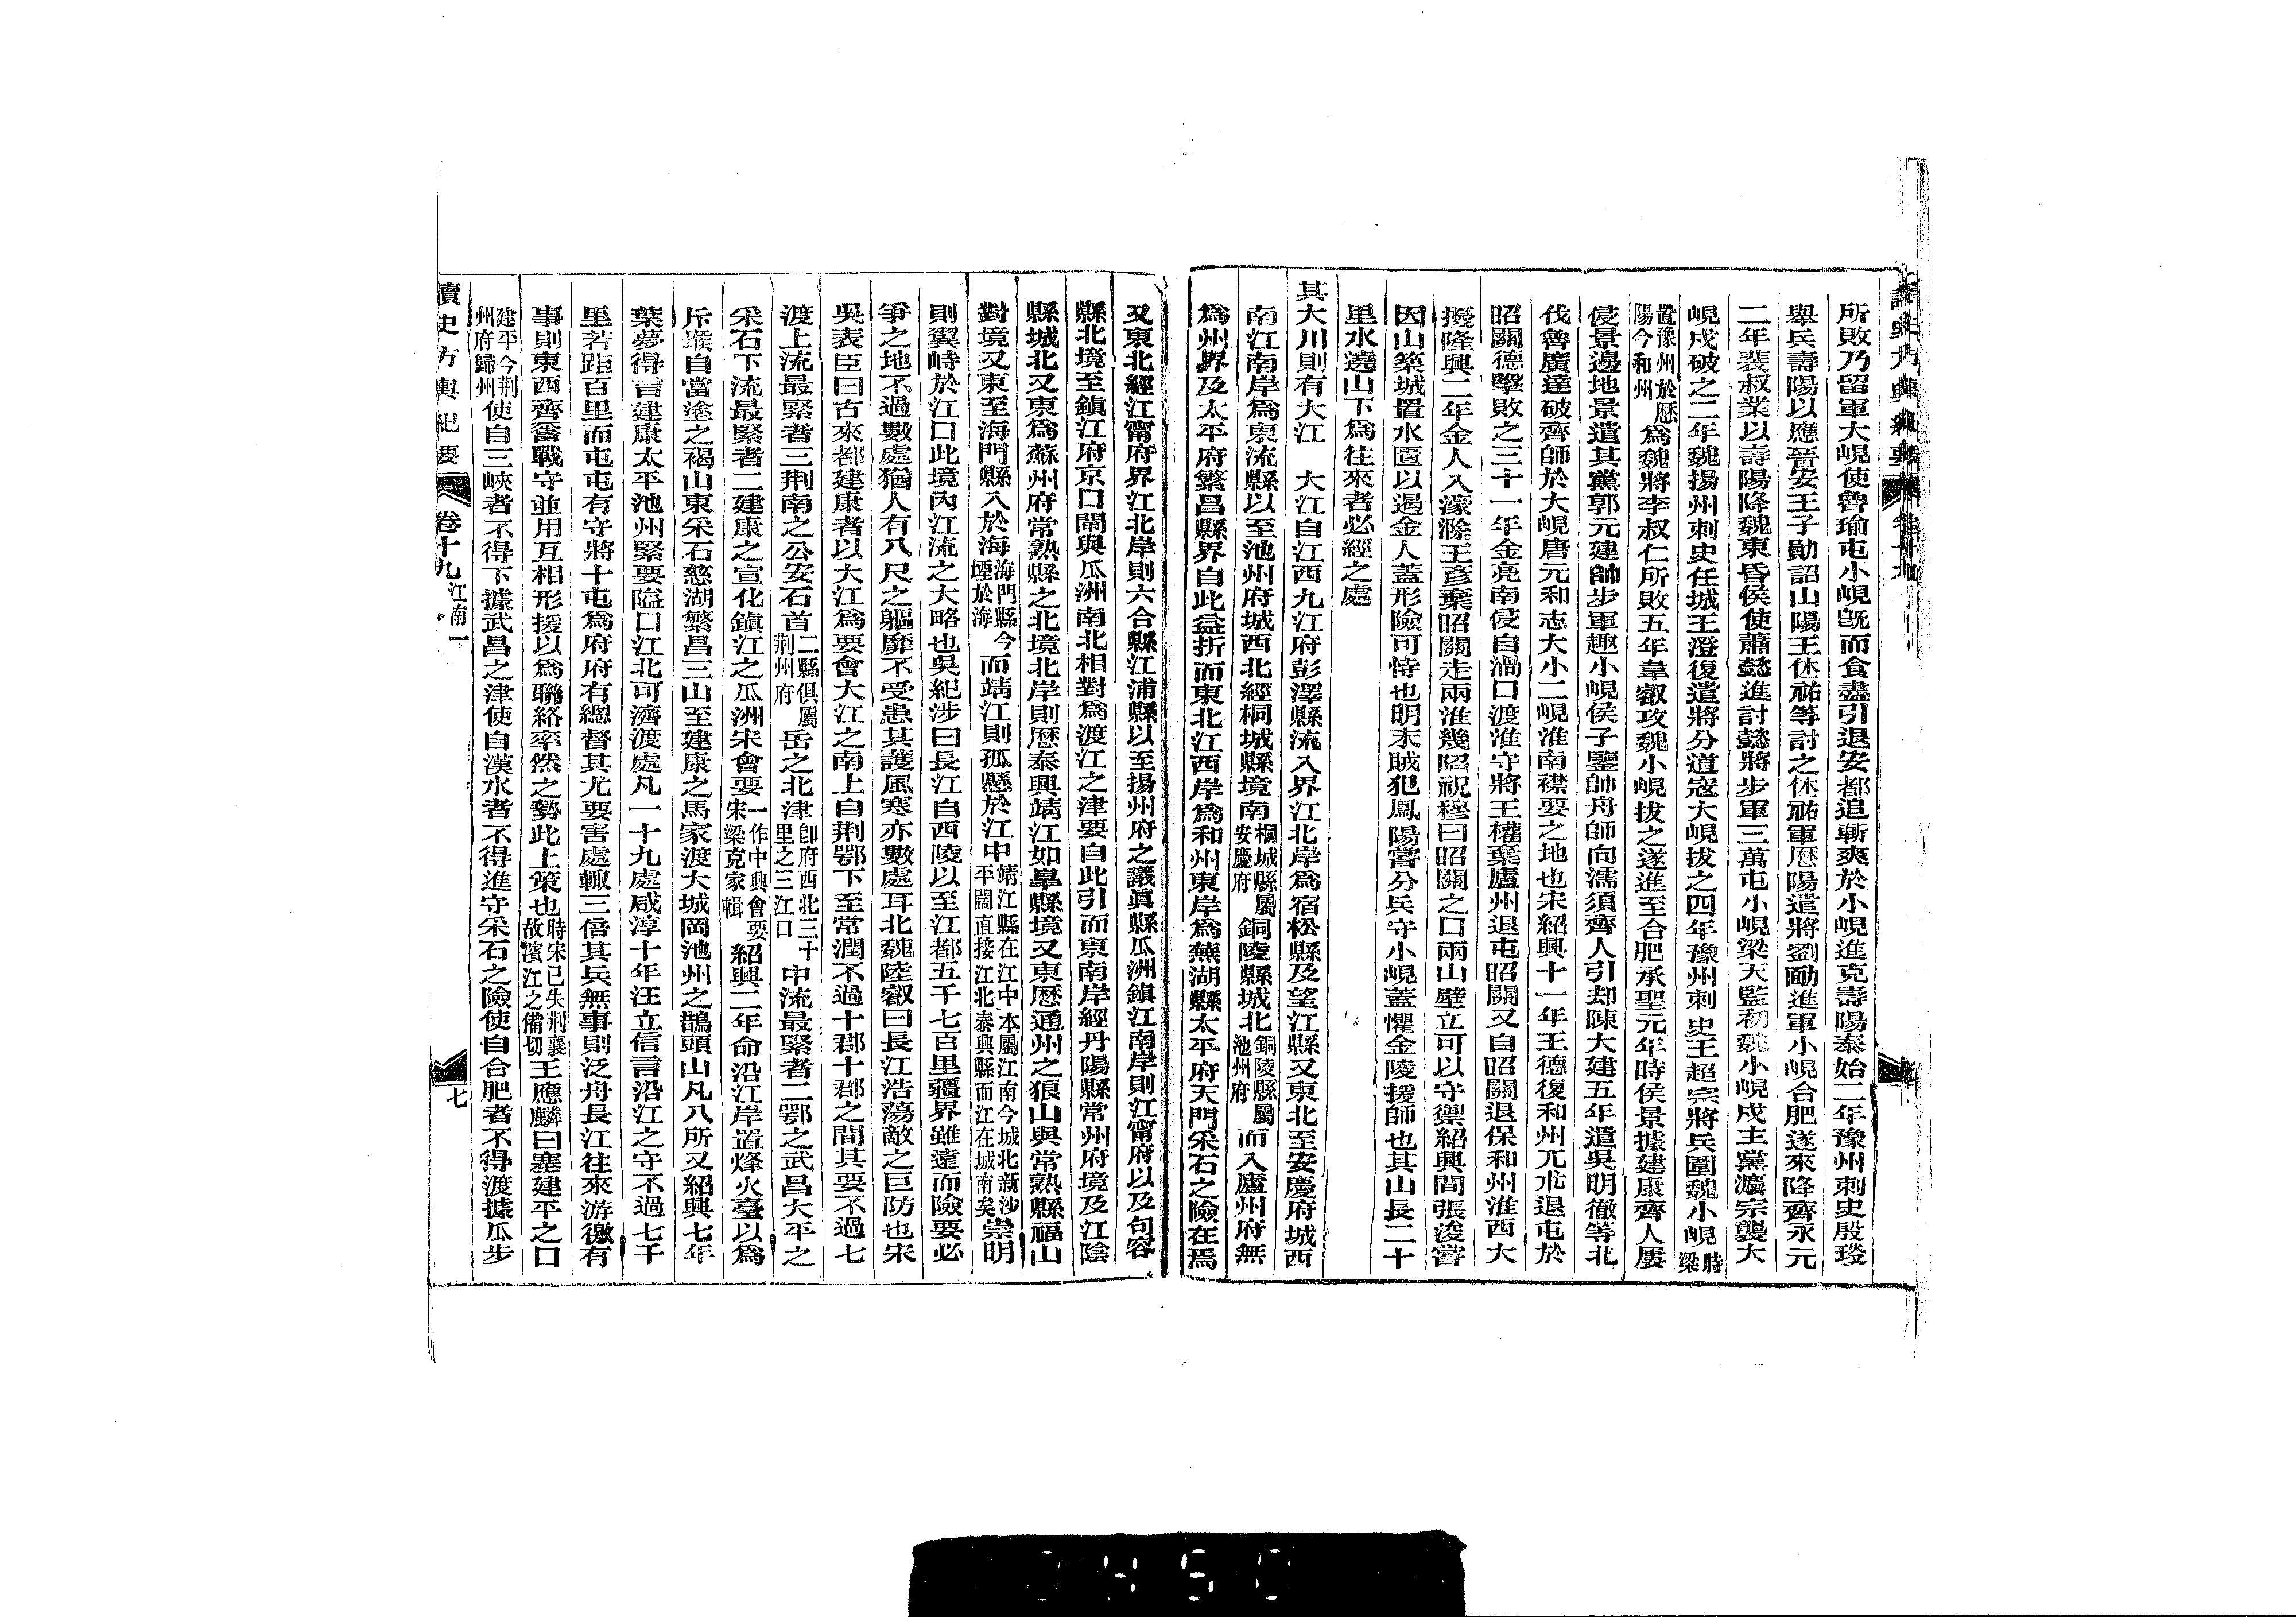 所敗乃留軍大峴使魯瑜屯小峴旣而食盡引退安都追斬爽於小峴進克壽陽泰始二年豫州刺史殷琰
舉兵壽陽以應晉安王子勛詔山陽王休祐等討之休祐軍歷陽遣將劉勔進軍小峴合肥遂來降齊永元
二年裴叔業以壽陽降魏東昏侯使蕭懿進討懿將步軍三萬屯小峴梁天監初魏小峴戍主黨灋宗襲大
峴戍破之二年魏揚州刺史任城王澄復遣將分道寇大峴拔之四年豫州刺史王超宗將兵圍魏小峴時梁
置豫州於歷陽今和州爲魏將李叔仁所敗五年韋叡攻魏小峴拔之遂進至合肥承聖元年時侯景據建康齊人屢
侵景邊地景遣其黨郭元建帥步軍趣小峴侯子鑒帥舟師向濡須齊人引却陳大建五年遣吳明徹等北
伐魯廣達破齊師於大峴唐元和志大小二峴淮南襟要之地也宋紹興十一年王德復和州兀朮退屯於
昭關德擊敗之三十一年金亮南侵自渦口渡淮守將王權棄廬州退屯昭關又自昭關退保和州淮西大
擾隆興二年金人入濠滁王彥棄昭關走兩淮幾陷祝穆曰昭關之口兩山壁立可以守禦紹興間張浚嘗
因山築城置水匱以遏金人蓋形險可恃也明末賊犯鳳陽嘗分兵守小峴蓋懼金陵援師也其山長二十
里水遶山下爲往來者必經之處
其大川則有大江　大江自江西九江府彭澤縣流入界江北岸爲宿松縣及望江縣又東北至安慶府城西
南江南岸爲東流縣以至池州府城西北經桐城縣境南桐城縣屬安慶府銅陵縣城北銅陵縣屬池州府而入廬州府無
爲州界及太平府繁昌縣界自此益折而東北江西岸爲和州東岸爲蕪湖縣太平府天門采石之險在焉
又東北經江甯府界江北岸則六合縣江浦縣以至揚州府之議眞縣瓜洲鎭江南岸則江甯府以及句容
縣北境至鎭江府京口閘與瓜洲南北相對爲渡江之津要自此引而東南岸經丹陽縣常州府境及江陰
縣城北又東爲蘇州府常熟縣之北境北岸則歷泰興靖江如臯縣境又東歷通州之狼山與常熟縣福山
對境又東至海門縣入於海海門縣今堙於海而靖江則孤懸於江中靖江縣在江中本屬江南今城北新沙平闊直接江北泰興縣而江在城南矣崇明
則翼峙於江口此境內江流之大略也吳紀涉曰長江自西陵以至江都五千七百里疆界雖遠而險要必
爭之地不過數處猶人有八尺之軀靡不受患其護風寒亦數處耳北魏陸叡曰長江浩蕩敵之巨防也宋
吳表臣曰古來都建康者以大江爲要會大江之南上自荆鄂下至常潤不過十郡十郡之間其要不過七
渡上流最緊者三荆南之公安石首二縣俱屬荆州府岳之北津卽府西北三十里之三江口中流最緊者二鄂之武昌大平之
采石下流最緊者二建康之宣化鎭江之瓜洲宋會要一作中興會要宋梁克家輯紹興二年命沿江岸置烽火臺以爲
斥堠自當塗之褐山東采石慈湖繁昌三山至建康之馬家渡大城岡池州之鵲頭山凡八所又紹興七年
葉夢得言建康太平池州緊要隘口江北可濟渡處凡一十九處咸淳十年汪立信言沿江之守不過七千
里若距百里而屯屯有守將十屯爲府府有總督其尤要害處輒三倍其兵無事則泛舟長江往來游徼有
事則東西齊奮戰守並用互相形援以爲聯絡率然之勢此上策也時宋已失荆襄故濱江之備切王應麟曰塞建平之口
建平今荆州府歸州使自三峽者不得下據武昌之津使自漢水者不得進守采石之險使自合肥者不得渡據瓜步
讀史方輿紀要　卷十九　江南一　七